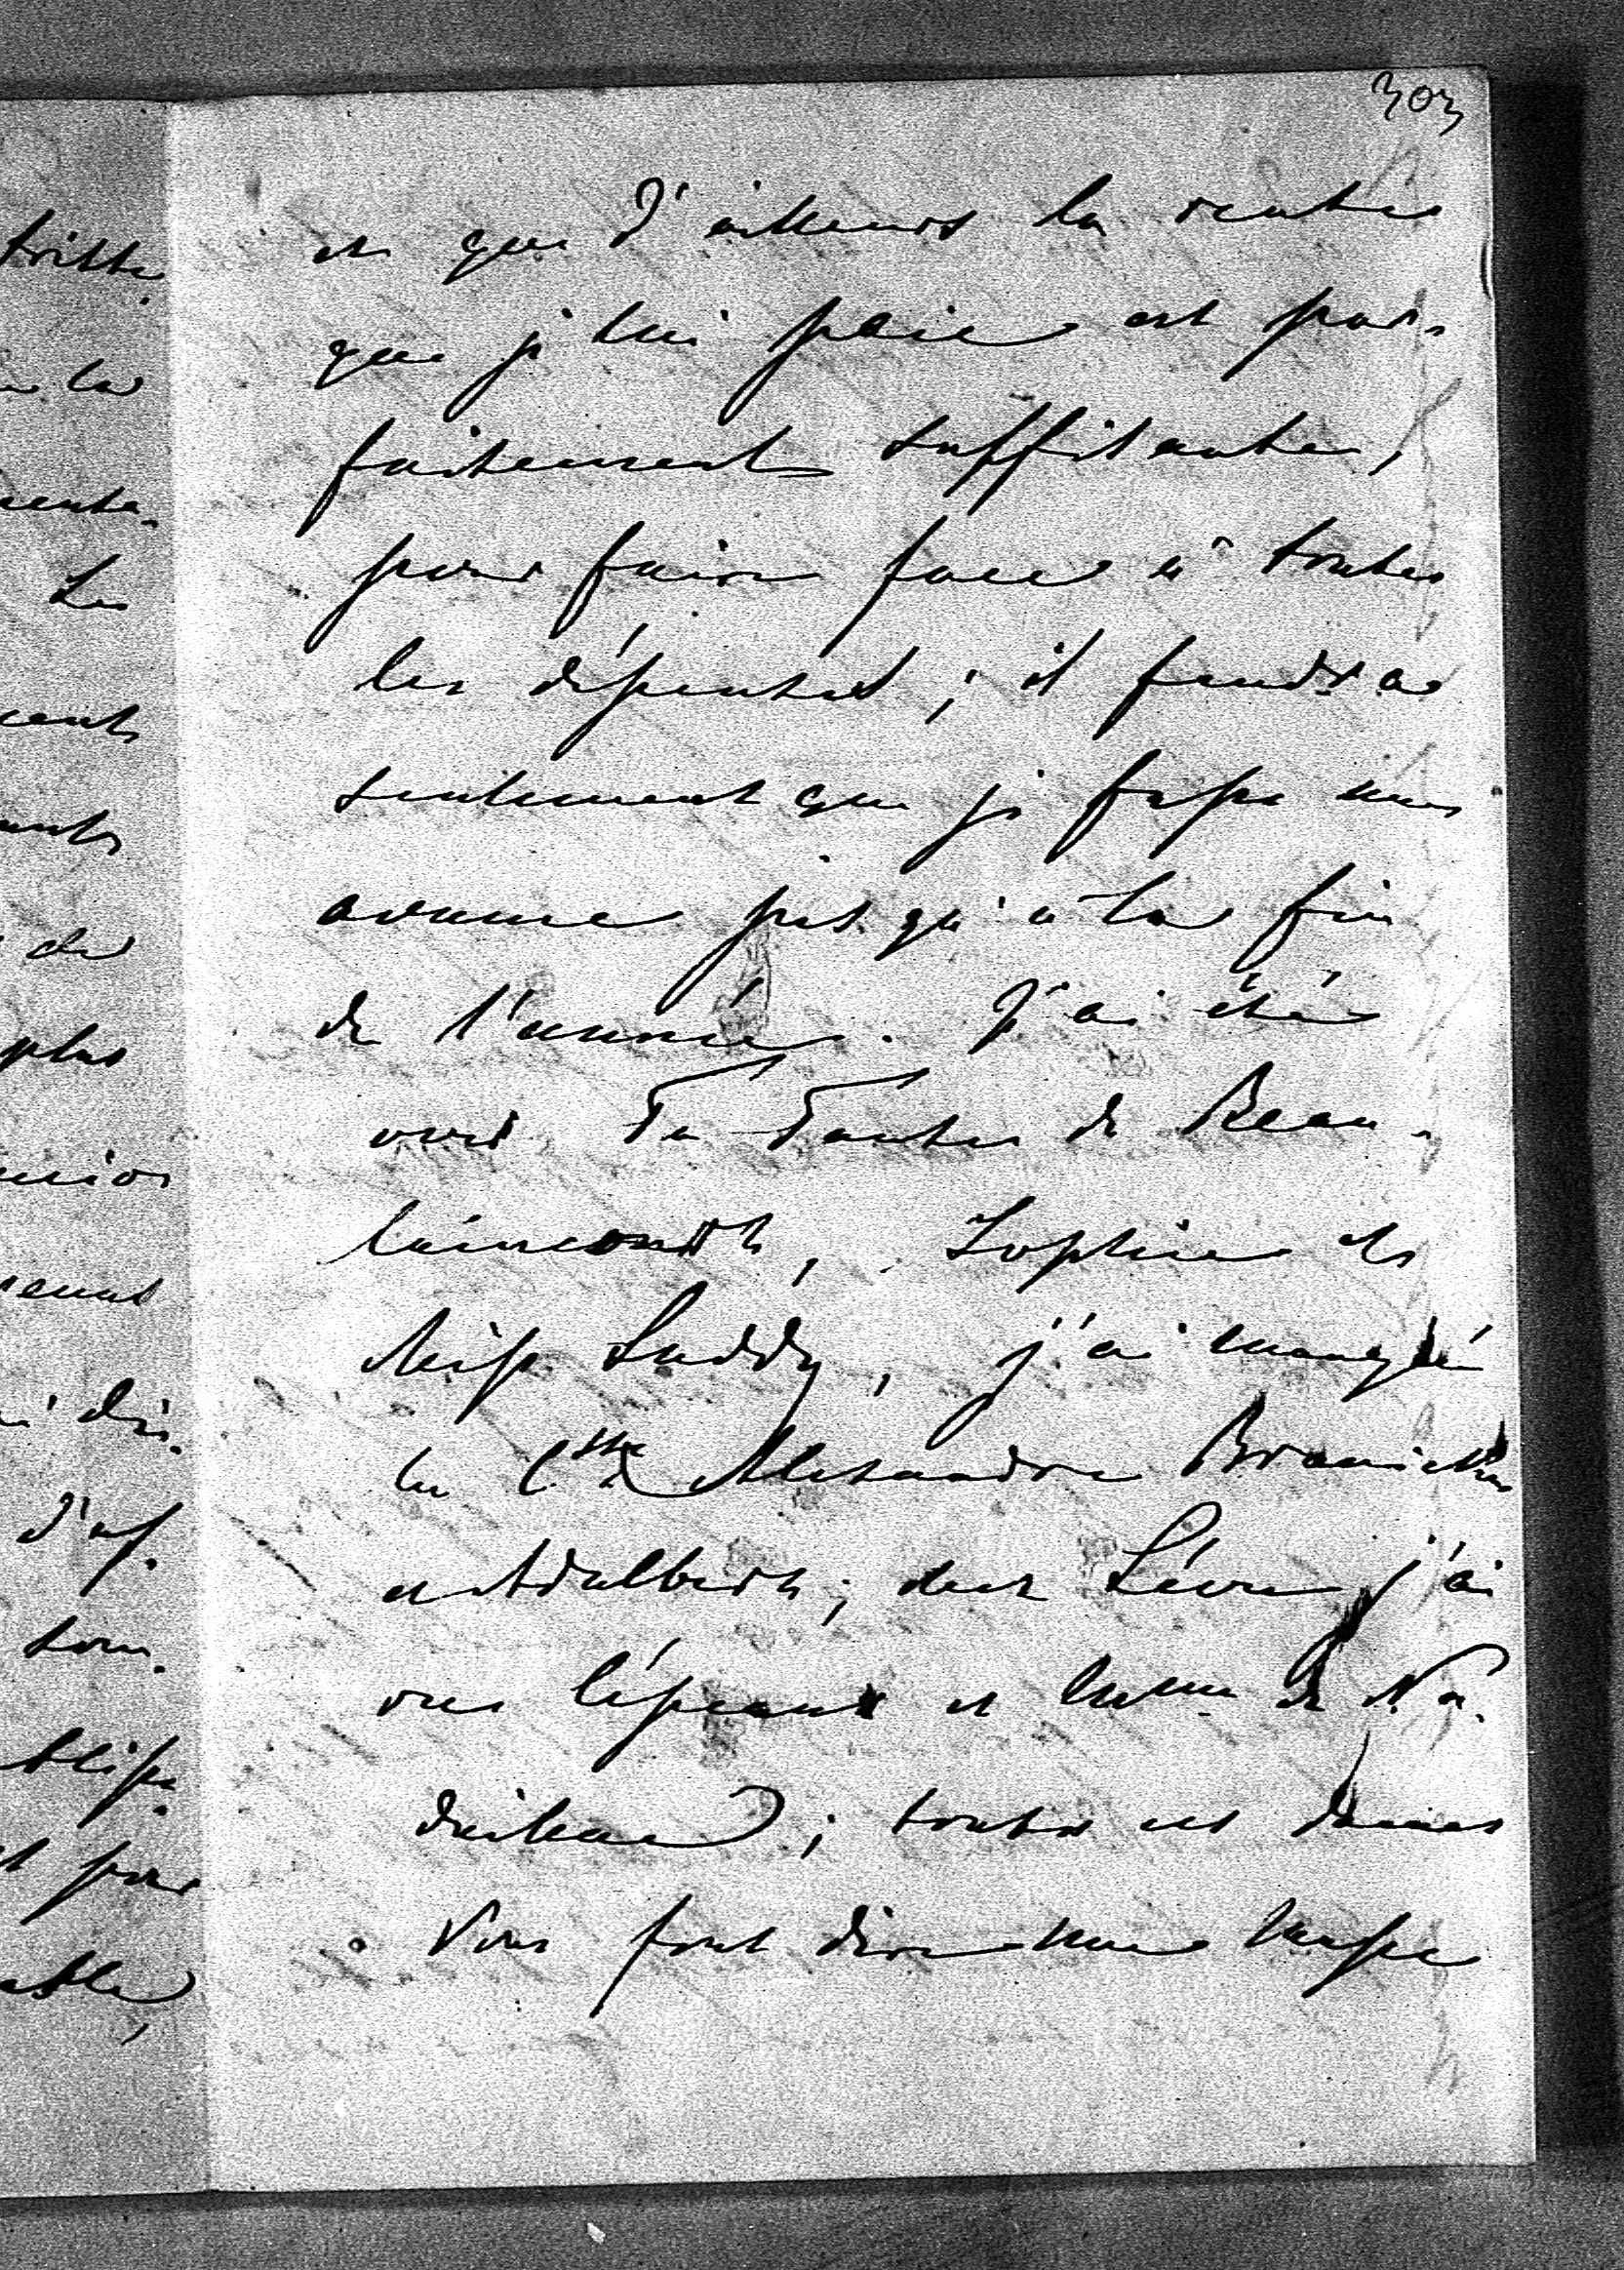 303
et que d'ailleurs la rente
que je lui paie est par-
faitement suffisante,
pour faire face à toutes
les dépenses ; il faudra
seulement que je fasse une
avance jusqu'à la fin
de l'année. J'ai été
voir Ta Tante de Beau-
laincourt, Sophie et
Miss Luddy, j'ai manqué
la C.sse Alexandre Branicka
et Adalbert ; chez Sév j'ai
vu et Mme de Na-
daillac ; toutes ces dames
Vous font dire une masse
triste
la
Les
de
plus
d'af-
pour